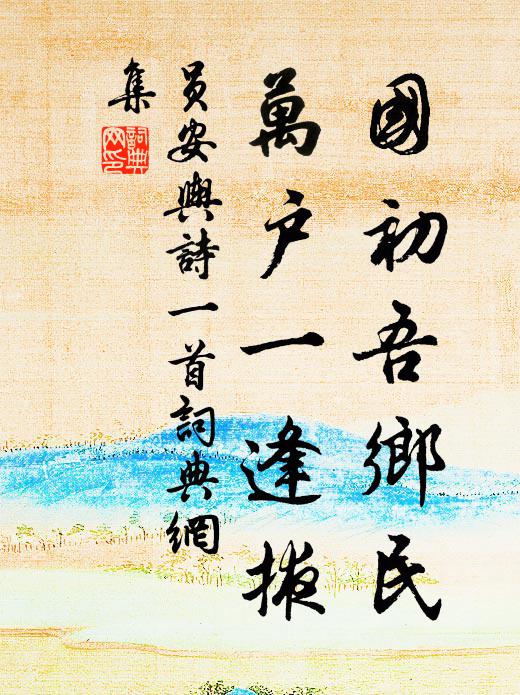 國初吾鄉民
萬户一逢掖
員安輿詩一首詞典網
集
詞典
网印